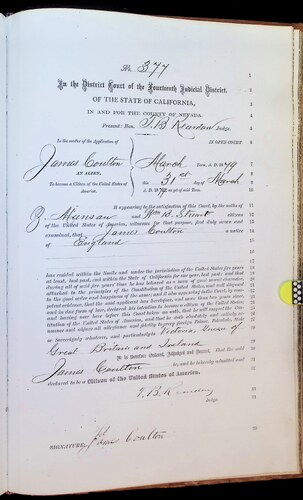 No. 377
In the District Court of the Fourteenth Judicial District,
OF THE STATE OF CALIFORNIA,
IN AND FOR THE COUNTY OF NEVADA.
Present: Hon. T. B. Reardan, Judge.
In the matter of the Application of
IN OPEN COURT
James Coulton
March Term, A. D. 1879
AN ALIEN,
this 31st day of March
To become a Citizen of the United States of America.
A. D. 1879
It appearing to the satisfaction of this Court, by the oaths of
Z. Manson and Wm B. Stewart citizens
of the United States of America, witnesses for that purpose, first duly sworn and
examined, that James Coulton a native
of England
has resided within the limits and under the jurisdiction of the United States five years
at least, last past, and within the State of California for one year, last past; and that
during all of said five years' time he has behaved as a man of good moral character,
attached to the principles of the Constitution of the United States, and well disposed
to the good order and happiness of the same; and it also appearing to the Court, by
petent evidence, that the said applicant has heretofore, and more than two years since,
and in due form of law, declared his intention to become a citizen of the United States
and having now here before this Court taken an oath, that he will support the Constitution
of the United States of America, and that he doth absolutely and entirely
renounce and abjure all allegiance and fidelity to every foreign Prince, Potentate, State
or Sovereignty whatever, and particularly to Victoria, Queen of
Great Britain and Ireland
It is therefore Ordered, Adjudged and Decreed, That the said
James Coulton be, and he is hereby admitted and
declared to be a Citizen of the United States of America.
T. B. Reardan
Judge.
SIGNATURE, James Coulton